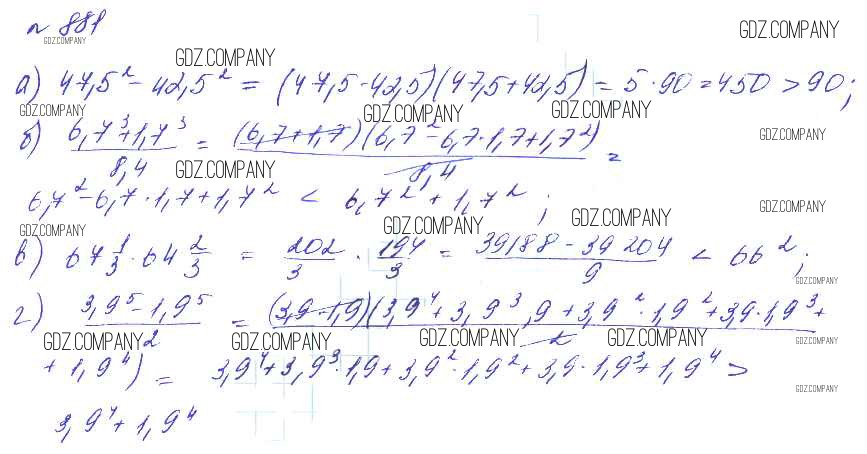 № 881
GDZ.COMPANY
GDZ.COMPANY
GDZ.COMPANY
а) 47,5² - 42,5² = (47,5-42,5)(47,5+42,5) = 5·90 = 450 > 90;
GDZ.COMPANY
GDZ.COMPANY
GDZ.COMPANY
GDZ.COMPANY
б) (6,7³+1,7³)/8,4 = (6,7+1,7)(6,7²-6,7·1,7+1,7²)/8,4 =
GDZ.COMPANY
6,7²-6,7·1,7+1,7² < 6,7²+1,7²;
GDZ.COMPANY
GDZ.COMPANY
GDZ.COMPANY
GDZ.COMPANY
в) 67 1/3 · 64 2/3 = 202/3 · 194/3 = 39188-39204/9 < 66²;
GDZ.COMPANY
г) (3,9⁵-1,9⁵)/2 = (3,9-1,9)(3,9⁴+3,9³,9+3,9²·1,9²+3,9·1,9³+
GDZ.COMPANY
GDZ.COMPANY
GDZ.COMPANY
GDZ.COMPANY
GDZ.COMPANY
+1,9⁴)/2 = 3,9⁴+3,9³·1,9+3,9²·1,9²+3,9·1,9³+1,9⁴ >
GDZ.COMPANY
3,9⁴+1,9⁴